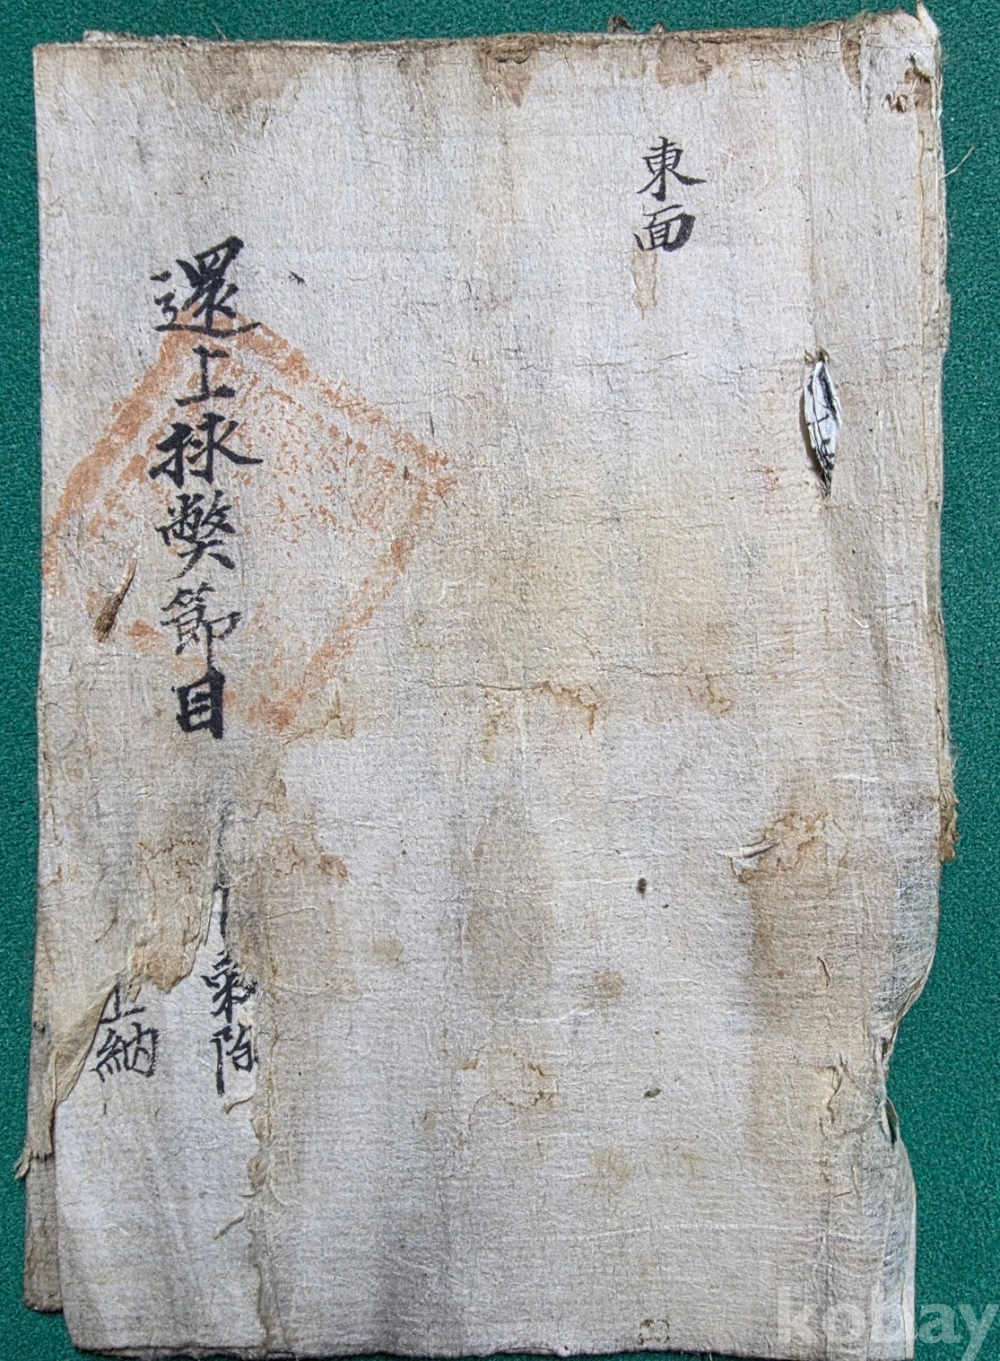 東面
還上捄弊節目
上納
kobay